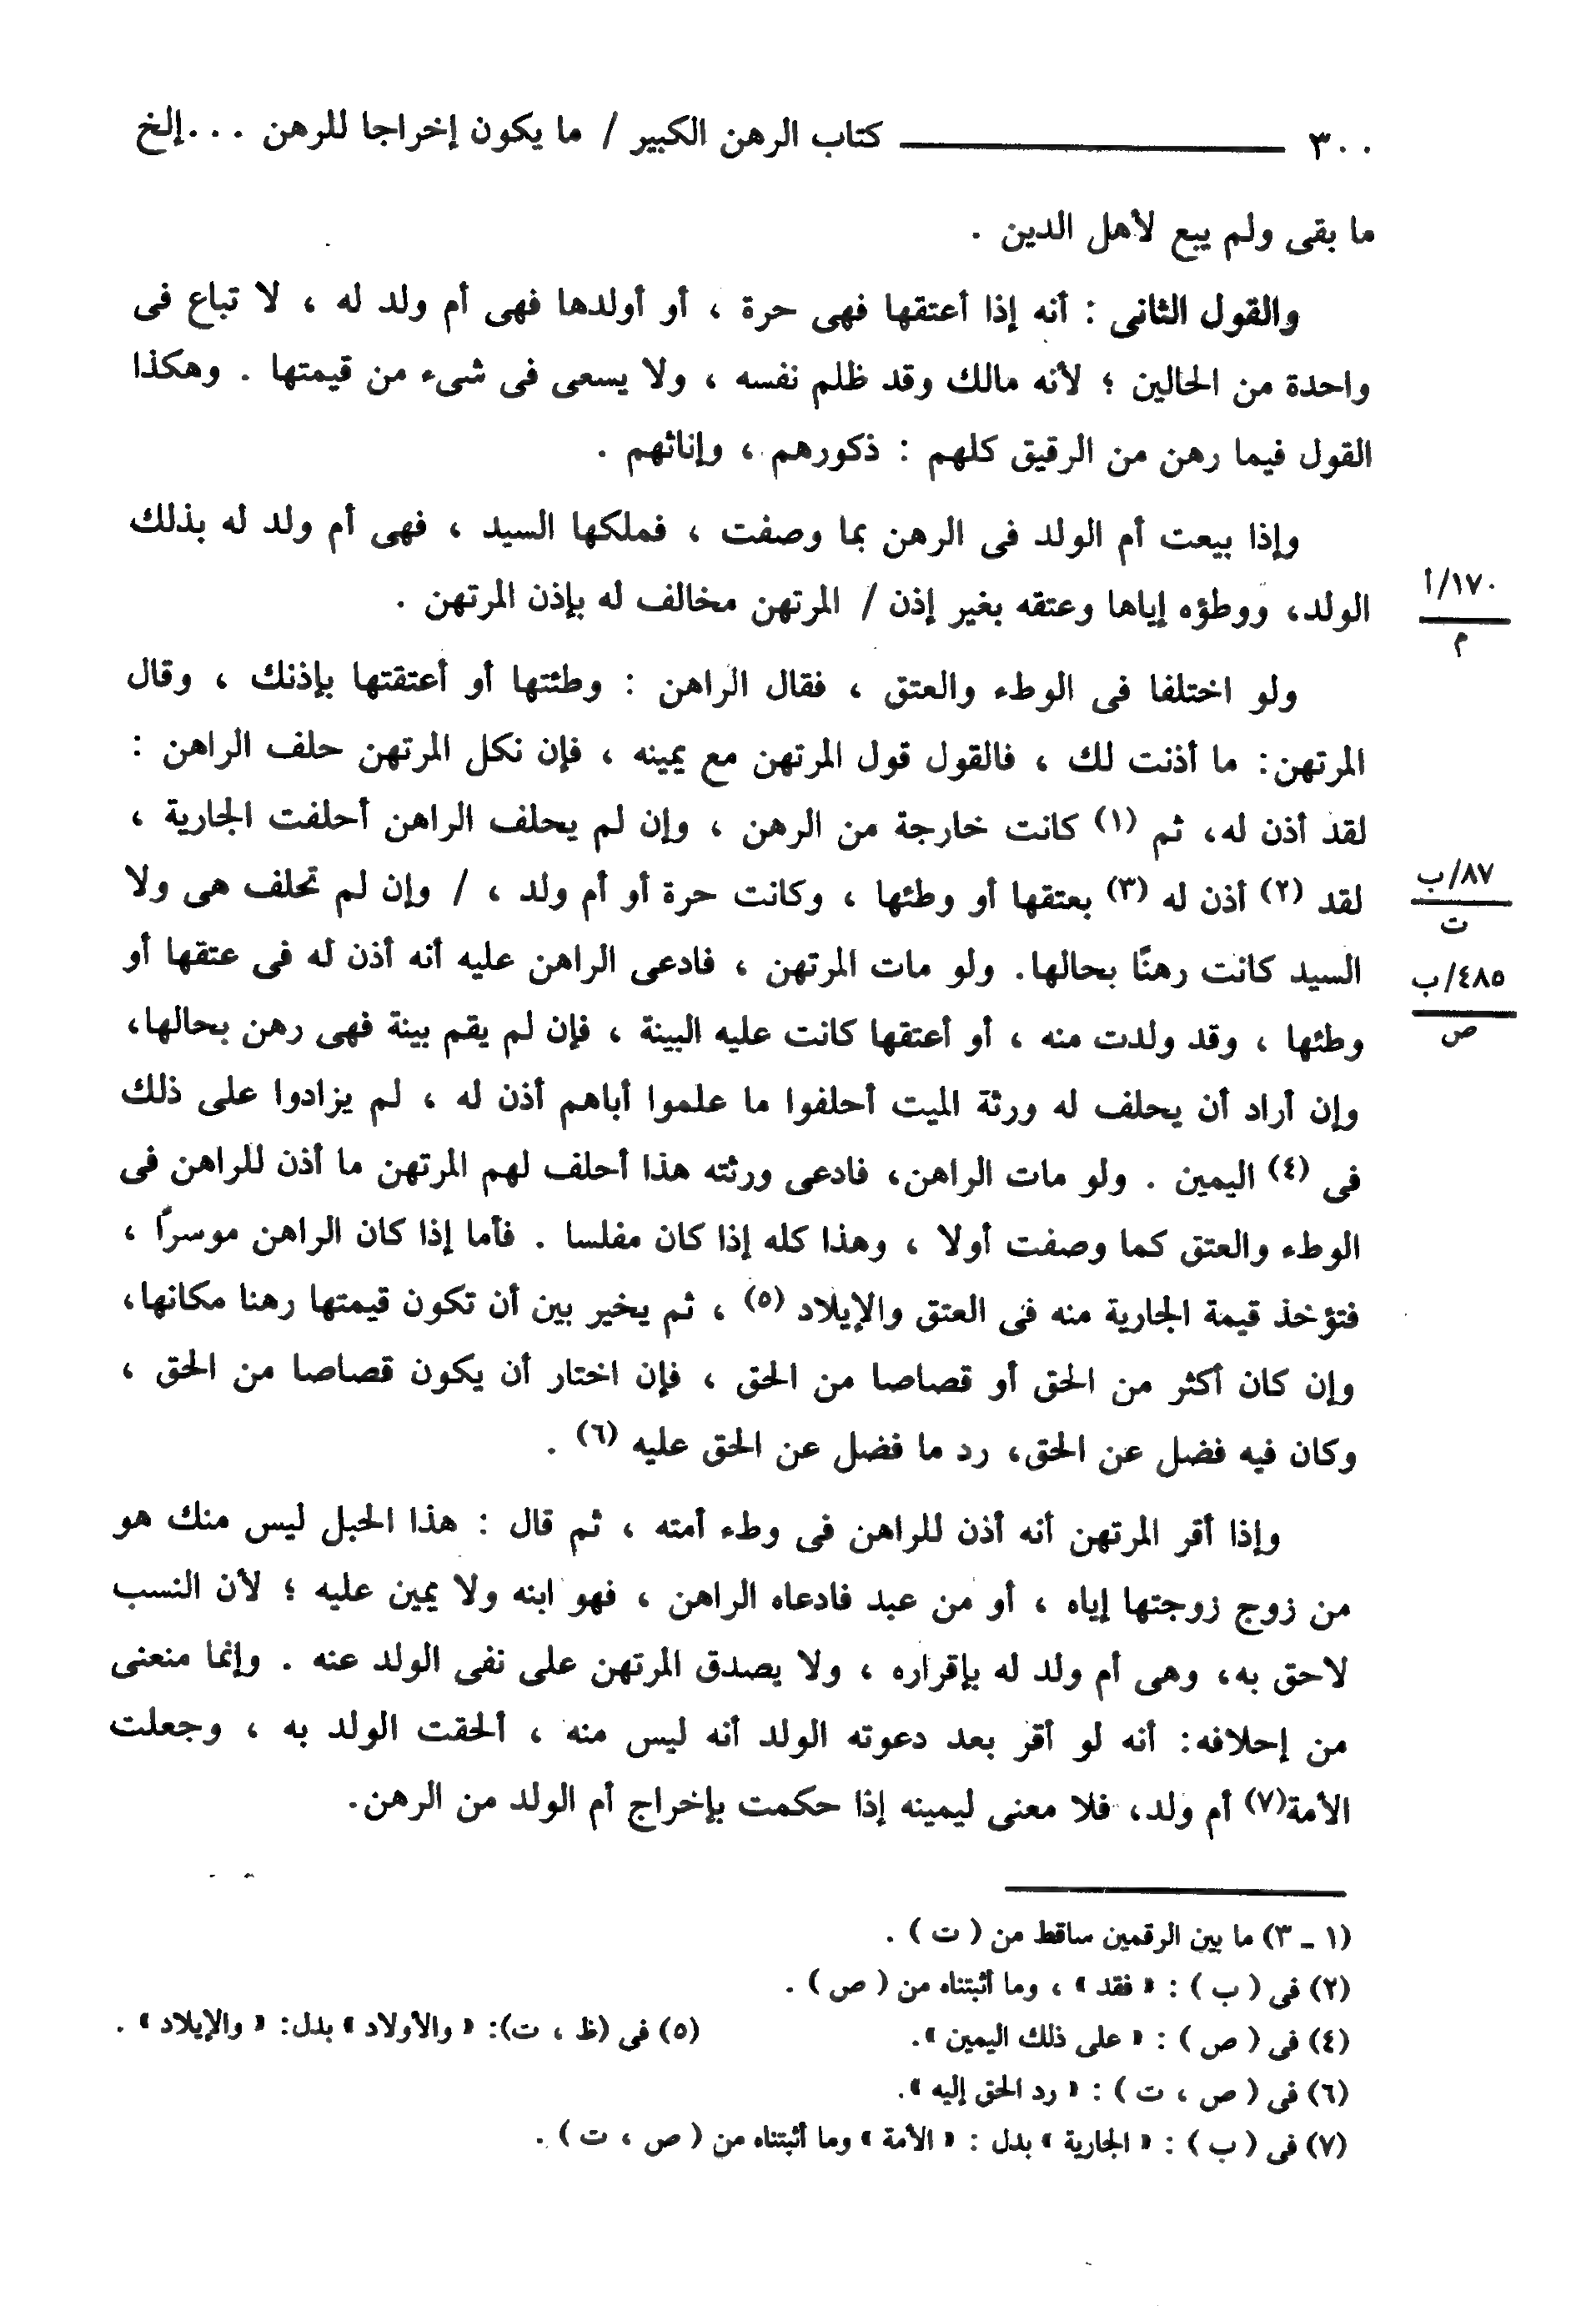 ٣٠٠ كتاب الرهن الكبير / ما يكون إخراجا للرهن ...إلخ
ما بقى ولم يبع لأهل الدين .
والقول الثانى : أنه إذا أعتقها فهى حرة ، أو أولدها فهى أم ولد له ، لا تباع فى
واحدة من الحالين ؛ لأنه مالك وقد ظلم نفسه ، ولا يسعى فى شىء من قيمتها . وهكذا
القول فيما رهن من الرقيق كلهم : ذكورهم ، وإناثهم .
وإذا بيعت أم الولد فى الرهن بما وصفت ، فملكها السيد ، فهى أم ولد له بذلك
الولد، ووطؤه إياها وعتقه بغير إذن / المرتهن مخالف له بإذن المرتهن .
١٧٠/أ
م
ولو اختلفا فى الوطء والعتق ، فقال الراهن : وطئتها أو أعتقتها بإذنك ، وقال
المرتهن: ما أذنت لك ، فالقول قول المرتهن مع يمينه ، فإن نكل المرتهن حلف الراهن :
لقد أذن له، ثم (١) كانت خارجة من الرهن ، وإن لم يحلف الراهن أحلفت الجارية ،
لقد (٢) أذن له (٣) بعتقها أو وطئها ، وكانت حرة أو أم ولد ، / وإن لم تحلف هى ولا
٨٧/ب
ت
السيد كانت رهنًا بحالها. ولو مات المرتهن ، فادعى الراهن عليه أنه أذن له فى عتقها أو
٤٨٥/ب
ص
وطئها ، وقد ولدت منه ، أو أعتقها كانت عليه البينة ، فإن لم يقم بينة فهى رهن بحالها،
وإن أراد أن يحلف له ورثة الميت أحلفوا ما علموا أباهم أذن له ، لم يزادوا على ذلك
فى (٤) اليمين . ولو مات الراهن، فادعى ورثته هذا أحلف لهم المرتهن ما أذن للراهن فى
الوطء والعتق كما وصفت أولا ، وهذا كله إذا كان مفلسا . فأما إذا كان الراهن موسرًا ،
فتؤخذ قيمة الجارية منه فى العتق والإيلاد (٥) ، ثم يخير بين أن تكون قيمتها رهنا مكانها،
وإن كان أكثر من الحق أو قصاصا من الحق ، فإن اختار أن يكون قصاصا من الحق ،
وكان فيه فضل عن الحق، رد ما فضل عن الحق عليه (٦) .
وإذا أقر المرتهن أنه أذن للراهن فى وطء أمته ، ثم قال : هذا الحبل ليس منك هو
من زوج زوجتها إياه ، أو من عبد فادعاه الراهن ، فهو ابنه ولا يمين عليه ؛ لأن النسب
لاحق به، وهى أم ولد له بإقراره ، ولا يصدق المرتهن على نفى الولد عنه . وإنما منعنى
من إحلافه: أنه لو أقر بعد دعوته الولد أنه ليس منه ، ألحقت الولد به ، وجعلت
الأمة(٧) أم ولد، فلا معنى ليمينه إذا حكمت بإخراج أم الولد من الرهن.
(١ ـ ٣) ما بين الرقمين ساقط من ( ت ) .
(٢) فى ( ب ) : « فقد » ، وما أثبتناه من ( ص ) .
(٤) فى ( ص ) : « على ذلك اليمين ». (٥) فى (ظ ، ت): « والأولاد » بدل: « والإيلاد » .
(٦) فى ( ص ، ت ) : « رد الحق إليه ».
(٧) فى ( ب ) : « الجارية » بدل : « الأمة » وما أثبتناه من ( ص ، ت ) .